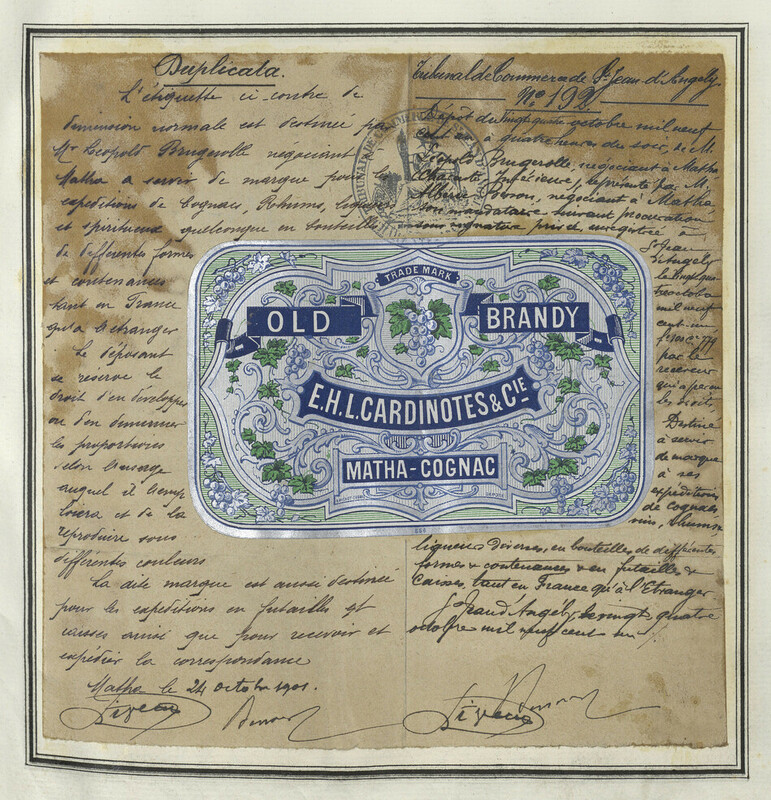 Duplicata.
L'étiquette ci contre de
dimension normale est destinée par
Mr Léopold Brugerolle négociant
Matha a servir de marque pour les
expeditions de Cognacs, Rhums, liqueurs
et spiritueux quelconque en bouteilles
de differentes formes
et contenances
tant en France
qu'a l'etranger
Le déposant
se reserve le
droit d'en developper
ou d'en diminuer
les proportions
selon l'usage
auquel il
et de la
reproduire sous
différentes couleurs
La dite marque est aussi destinée
pour les expeditions en futailles et
caisses ainsi que pour recevoir et
expédier la correspondance
Matha le 24 octobre 1901.
Tribunal de Commerce de St Jean d'Angely
No 192
Dépôt du vingt quatre octobre mil neuf
cent un à quatre heures du soir, de M.
Léopold Brugerolle, négociant à Matha
(Charente Inférieure), représenté par M.
négociant à Matha
son mandataire suivant procuration
sous signature privée enregistrée à
St Jean
d'Angely
le vingt quatre
octobre
mil neuf
cent un
par le
receveur
qui a perçu
les droits.
Destiné
à servir
de marque
à ses
expéditions
de cognacs
vins, rhums
liqueurs diverses, en bouteilles de différentes
formes & contenances & en futailles &
caisses, tant en France qu'à l'Etranger
St Jean d'Angely le vingt quatre
octobre mil neuf cent un
TRADE MARK
OLD BRANDY
E.H.L. CARDINOTES & CIE
MATHA-COGNAC